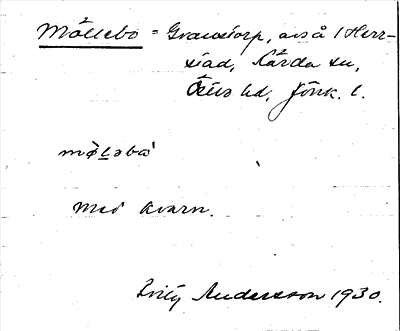 Möllebo = Granstorp, avs å 1 Herr-
stad, Kärda sn,
Östbo hd, Jönk. l.
møləbo
med kvarn.
Andersson 1930.